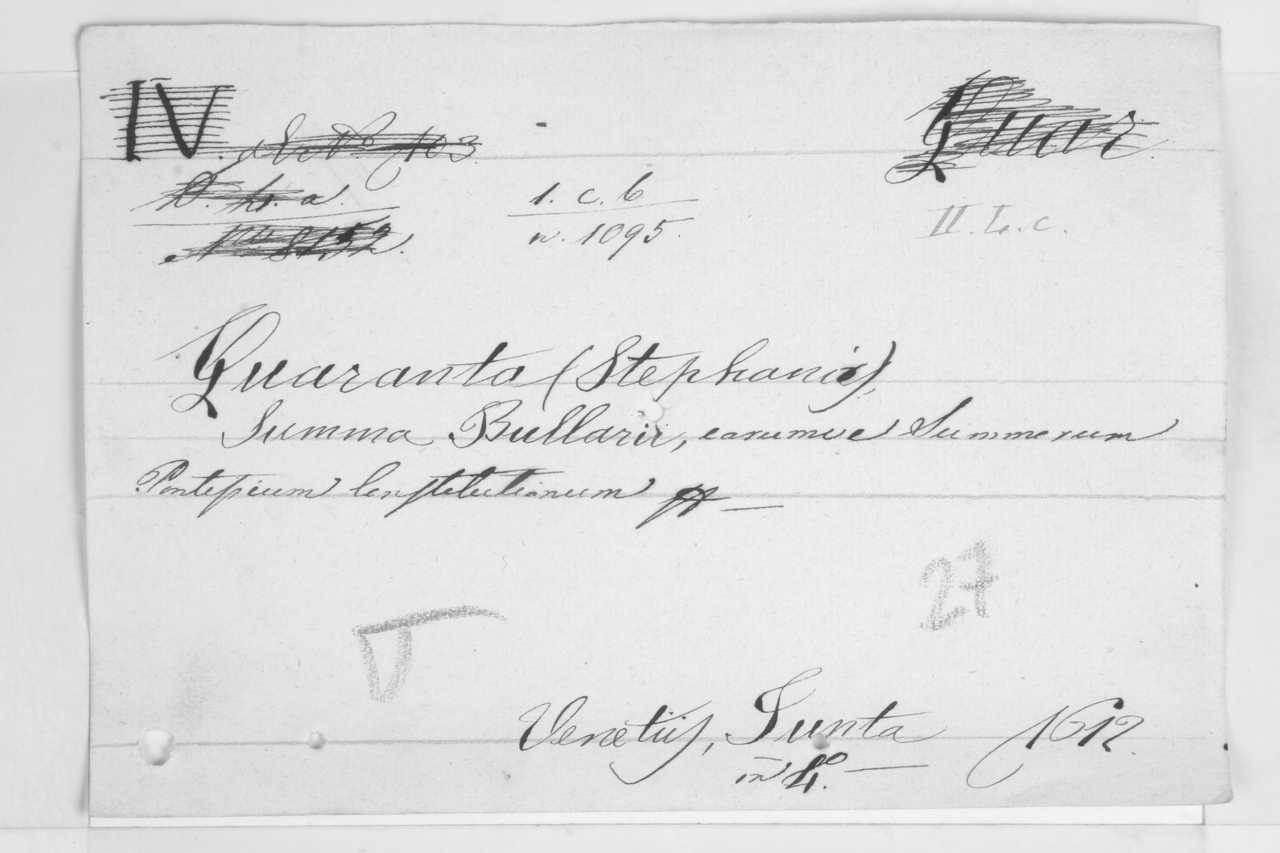 IV
Quar.
D. h. a.
1. c. b
n. 1095.
II. L. c.
No 8152.
Quaranta (Stephani),
Summa Bullarii, earumve Summorum
Pontificum Constitutionum
27
V
Venetiis, Junta 1612.
in 4o. —